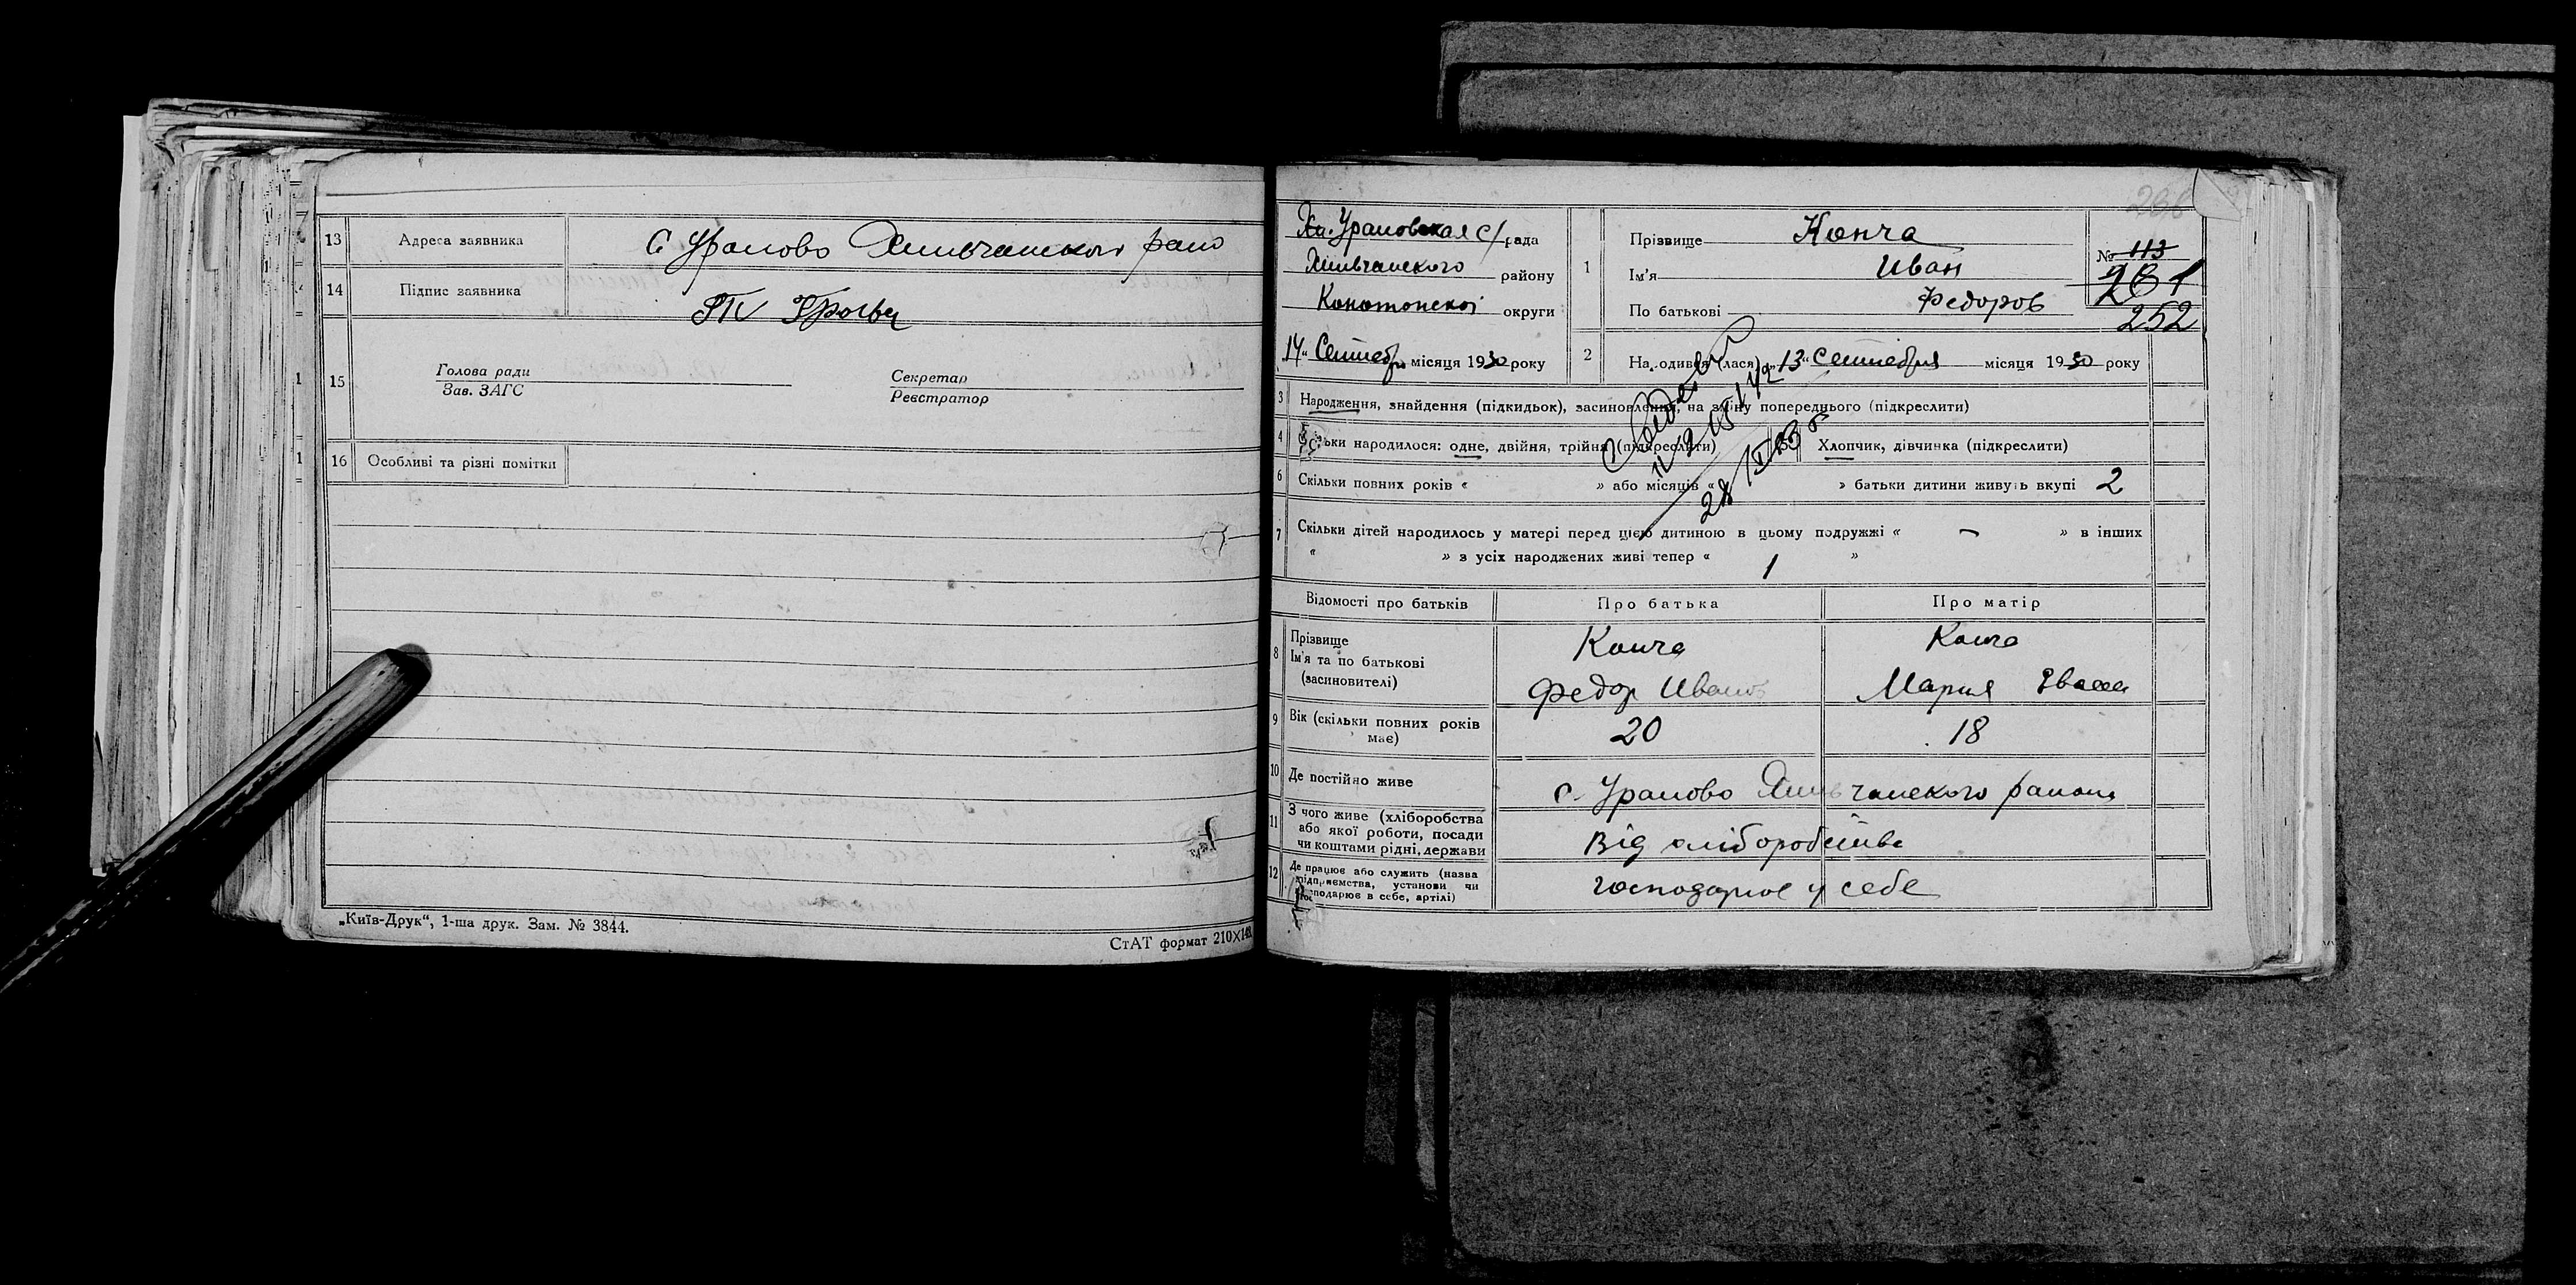 13 Адреса заявника С Урамово Хильчанского рано
14 Підпис заявника
15 Голова ради Секретар
Зав. ЗАГС Реєстратор
16 Особливі та різні помітки
„Київ-Друк“, 1-ша друк. Зам. № 3844.
СтАТ формат 210Х148
266
Урамовская с/рада
Хильчанского району
Конотопскої округи
14 „ Сентебр місяця 1930 року
1 Прізвище Конча
Ім'я Иван
По батькові Федоров
№ 113
261
252
2 На одився (лася) „13“ Сентебрия місяця 1930 року
3 Народження, знайдення (підкидьок), засиновлення, на зміну попереднього (підкреслити)
4 ьки народилося: одне, двійня, трійня (підкреслити) 5 Хлопчик, дівчинка (підкреслити)
6 Скільки повних років « » або місяців « » батьки дитини живуть вкупі 2
7 Скільки дітей народилось у матері перед цією дитиною в цьому подружжі « – » в інших
« » з усіх народжених живі тепер « 1 »
Відомості про батьків Про батька Про матір
8 Прізвище Конча Конча
Ім'я та по батькові
(засиновителі) Федор Иванов Мария
9 Вік (скільки повних років має) 20 18
10 Де постійно живе с. Урамово Хильчанского района
11 З чого живе (хліборобства
або якої роботи, посади
чи коштами рідні, держави Від хліборобства
12 Де працює або служить (назва
підприємства, установи чи
господарює в себе, артілі) господарює у себе